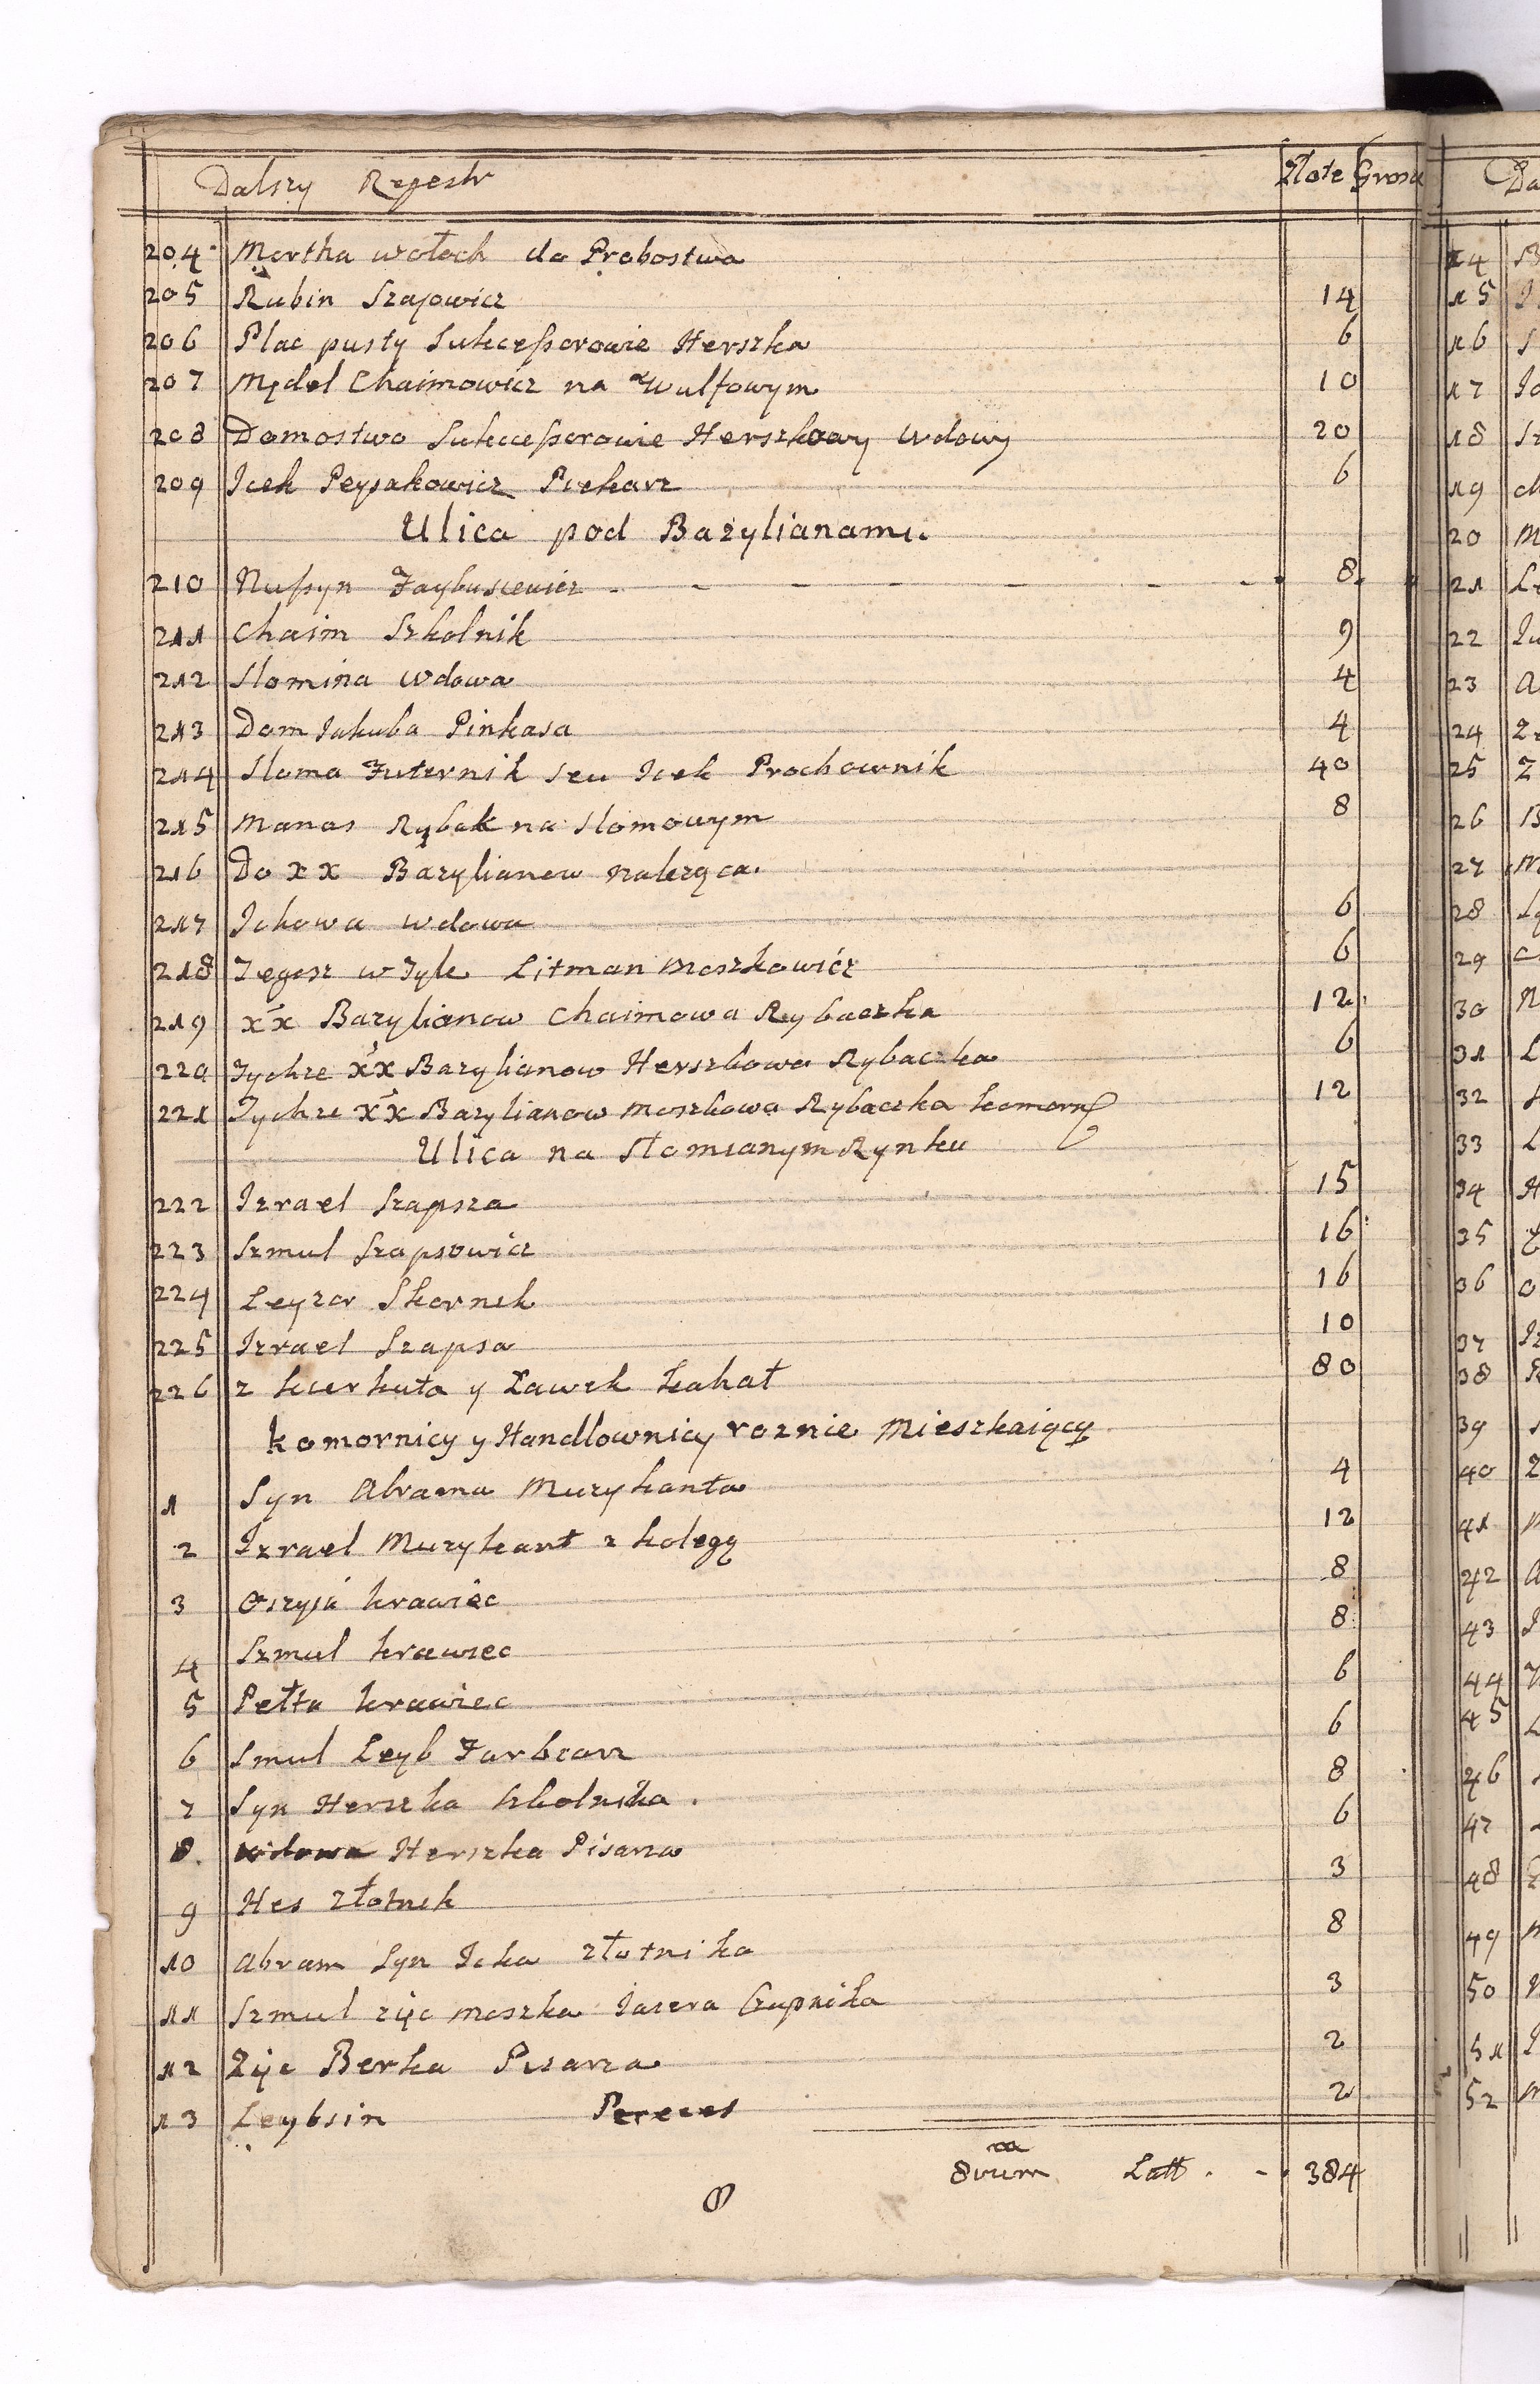 Dalszy Regestr Złote Grosze
204 Mortka wołoch do Probostwa
205 Rubin Szajowicz 14
206 Plac pusty Sukceßorowie Herszka 6
207 Mędel Chaimowicz na Wulfowym 10
208 Domostwo Sukceßorowie Herszkowy wdowy 20
209 Icek Peysakowicz Piekarz 6
Ulica pod Bazylianami.
210 Nußyn Faybusiewicz 8
211 Chaim Szkolnik 9
212 Slomina wdowa 4
213 Dom Jakuba Pinkasa 4
214 Sloma Futernik seu Icek Prochownik 40
215 Manas Rybak na Slomowym 8
216 Do xx Bazylianow naleząca.
217 Ickowa wdowa 6
218 Tegosz w Tyle Litman Moszkowicz 6
219 xx Bazylianow Chaimowa Rybaczka 12
220 Tychze xx Bazylianow Herszkowa Rybaczka 6
221 Tychze xx Bazylianow Moszkowa Rybaczka komorn 12
Ulica na Słomianym Rynku
222 Izrael Szapsza 15
223 Szmul Szapsowicz 16
224 Leyzor Skornik 16
225 Izrael Szapsa 10
226 z kierkuta y Ławek kahał 80
komornicy y Handlownicy roznie Mieszkaiący
1 Syn Abrama Muzykanta 4
2 Izrael Muzykant z kolegą 12
3 Oszyia krawiec 8
4 Szmul krawiec 8
5 Pełta krawiec 6
6 Smul Leyb Farbiarz 6
7 Syn Herszka szkolnika 8
8 wdowa Herszka Pisarza 6
9 Hes złotnik 3
10 Abram Syn Icka złotnika 8
11 Szmul zięc Moszka Jazera Czapnika 3
12 Zięc Berka Pisarza 2
13 Leybsin Pereces 2
Latt 384
8